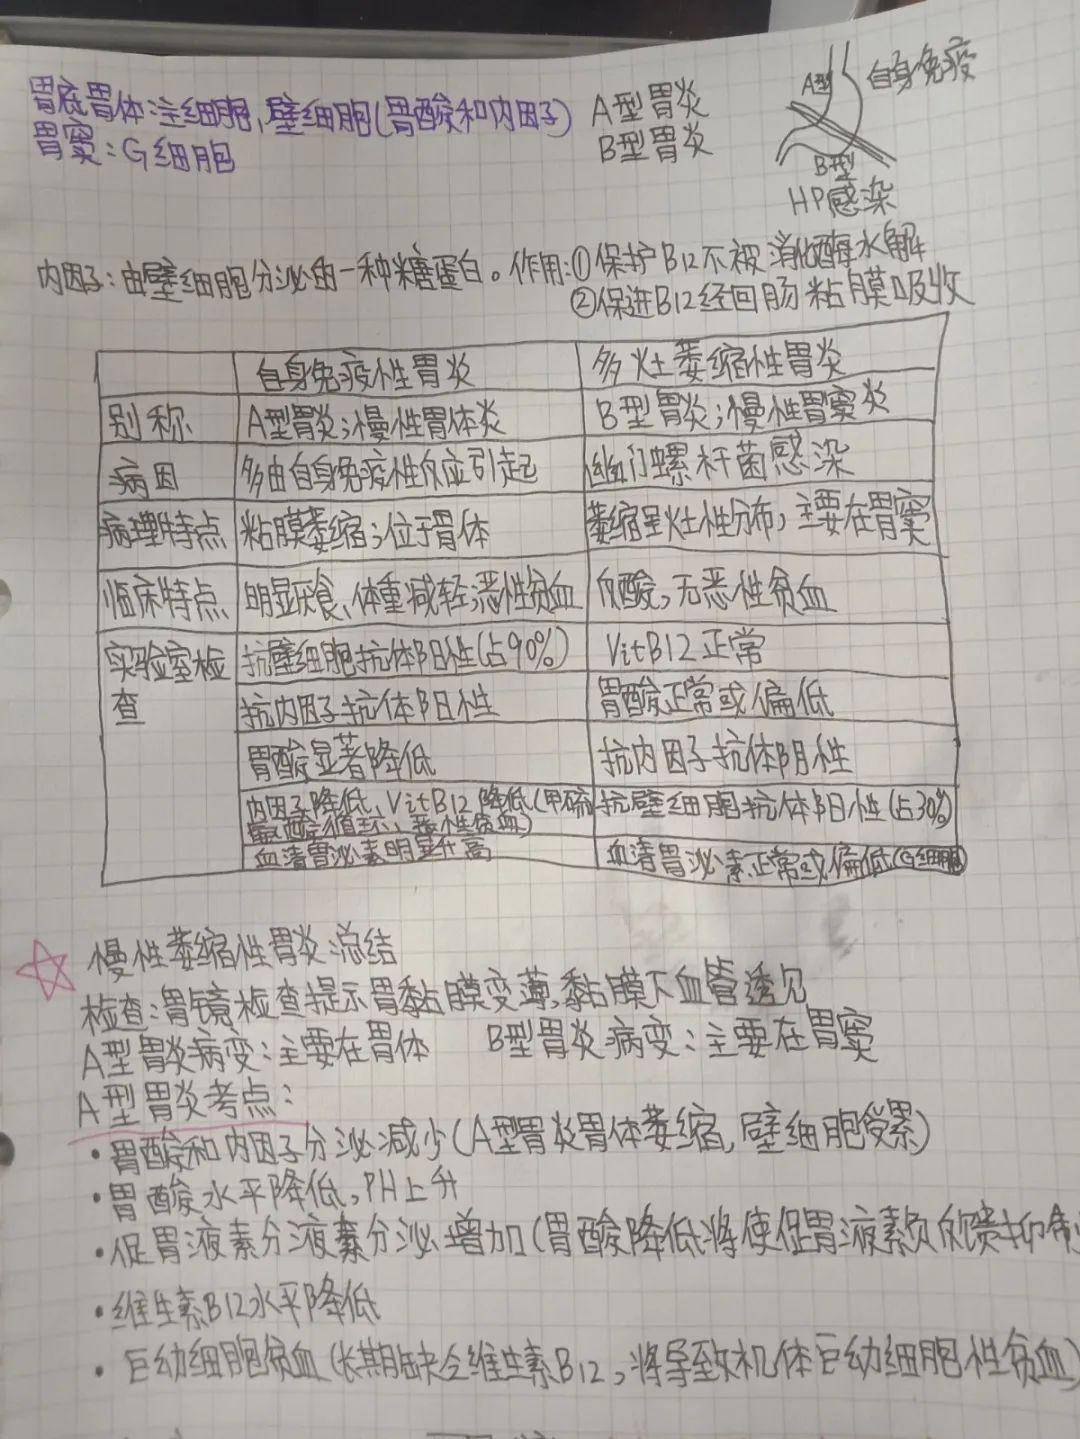 胃底胃体:主细胞,壁细胞(胃酸和内因子) A型胃炎
胃窦:G细胞 B型胃炎
A型 自身免疫
B型
HP感染
内因子:由壁细胞分泌由一种糖蛋白。作用:①保护B12不被消化酶水解
②保进B12经回肠粘膜吸收
自身免疫性胃炎 多灶萎缩性胃炎
别称 A型胃炎;慢性胃体炎 B型胃炎;慢性胃窦炎
病因 多由自身免疫性反应引起 幽门螺杆菌感染
病理特点 粘膜萎缩;位于胃体 萎缩呈灶性分布,主要在胃窦
临床特点 明显厌食、体重减轻;恶性贫血 反酸,无恶性贫血
实验室检查 抗壁细胞抗体阳性(占90%) VitB12正常
抗内因子抗体阳性 胃酸正常或偏低
胃酸显著降低 抗内因子抗体阴性
内因子降低、VitB12降低(甲硫氨酸循环、恶性贫血) 抗壁细胞抗体阳性(占30%)
血清胃泌素明显升高 血清胃泌素正常或偏低(G细胞)
慢性萎缩性胃炎总结
检查:胃镜检查提示胃黏膜变薄,黏膜下血管透见
A型胃炎病变:主要在胃体 B型胃炎病变:主要在胃窦
A型胃炎考点:
·胃酸和内因子分泌减少(A型胃炎胃体萎缩,壁细胞受累)
·胃酸水平降低,PH上升
·促胃液素分液素分泌增加(胃酸降低将使促胃液素负反馈抑制
·维生素B12水平降低
·巨幼细胞贫血(长期缺乏维生素B12,将导致机体巨幼细胞性贫血)